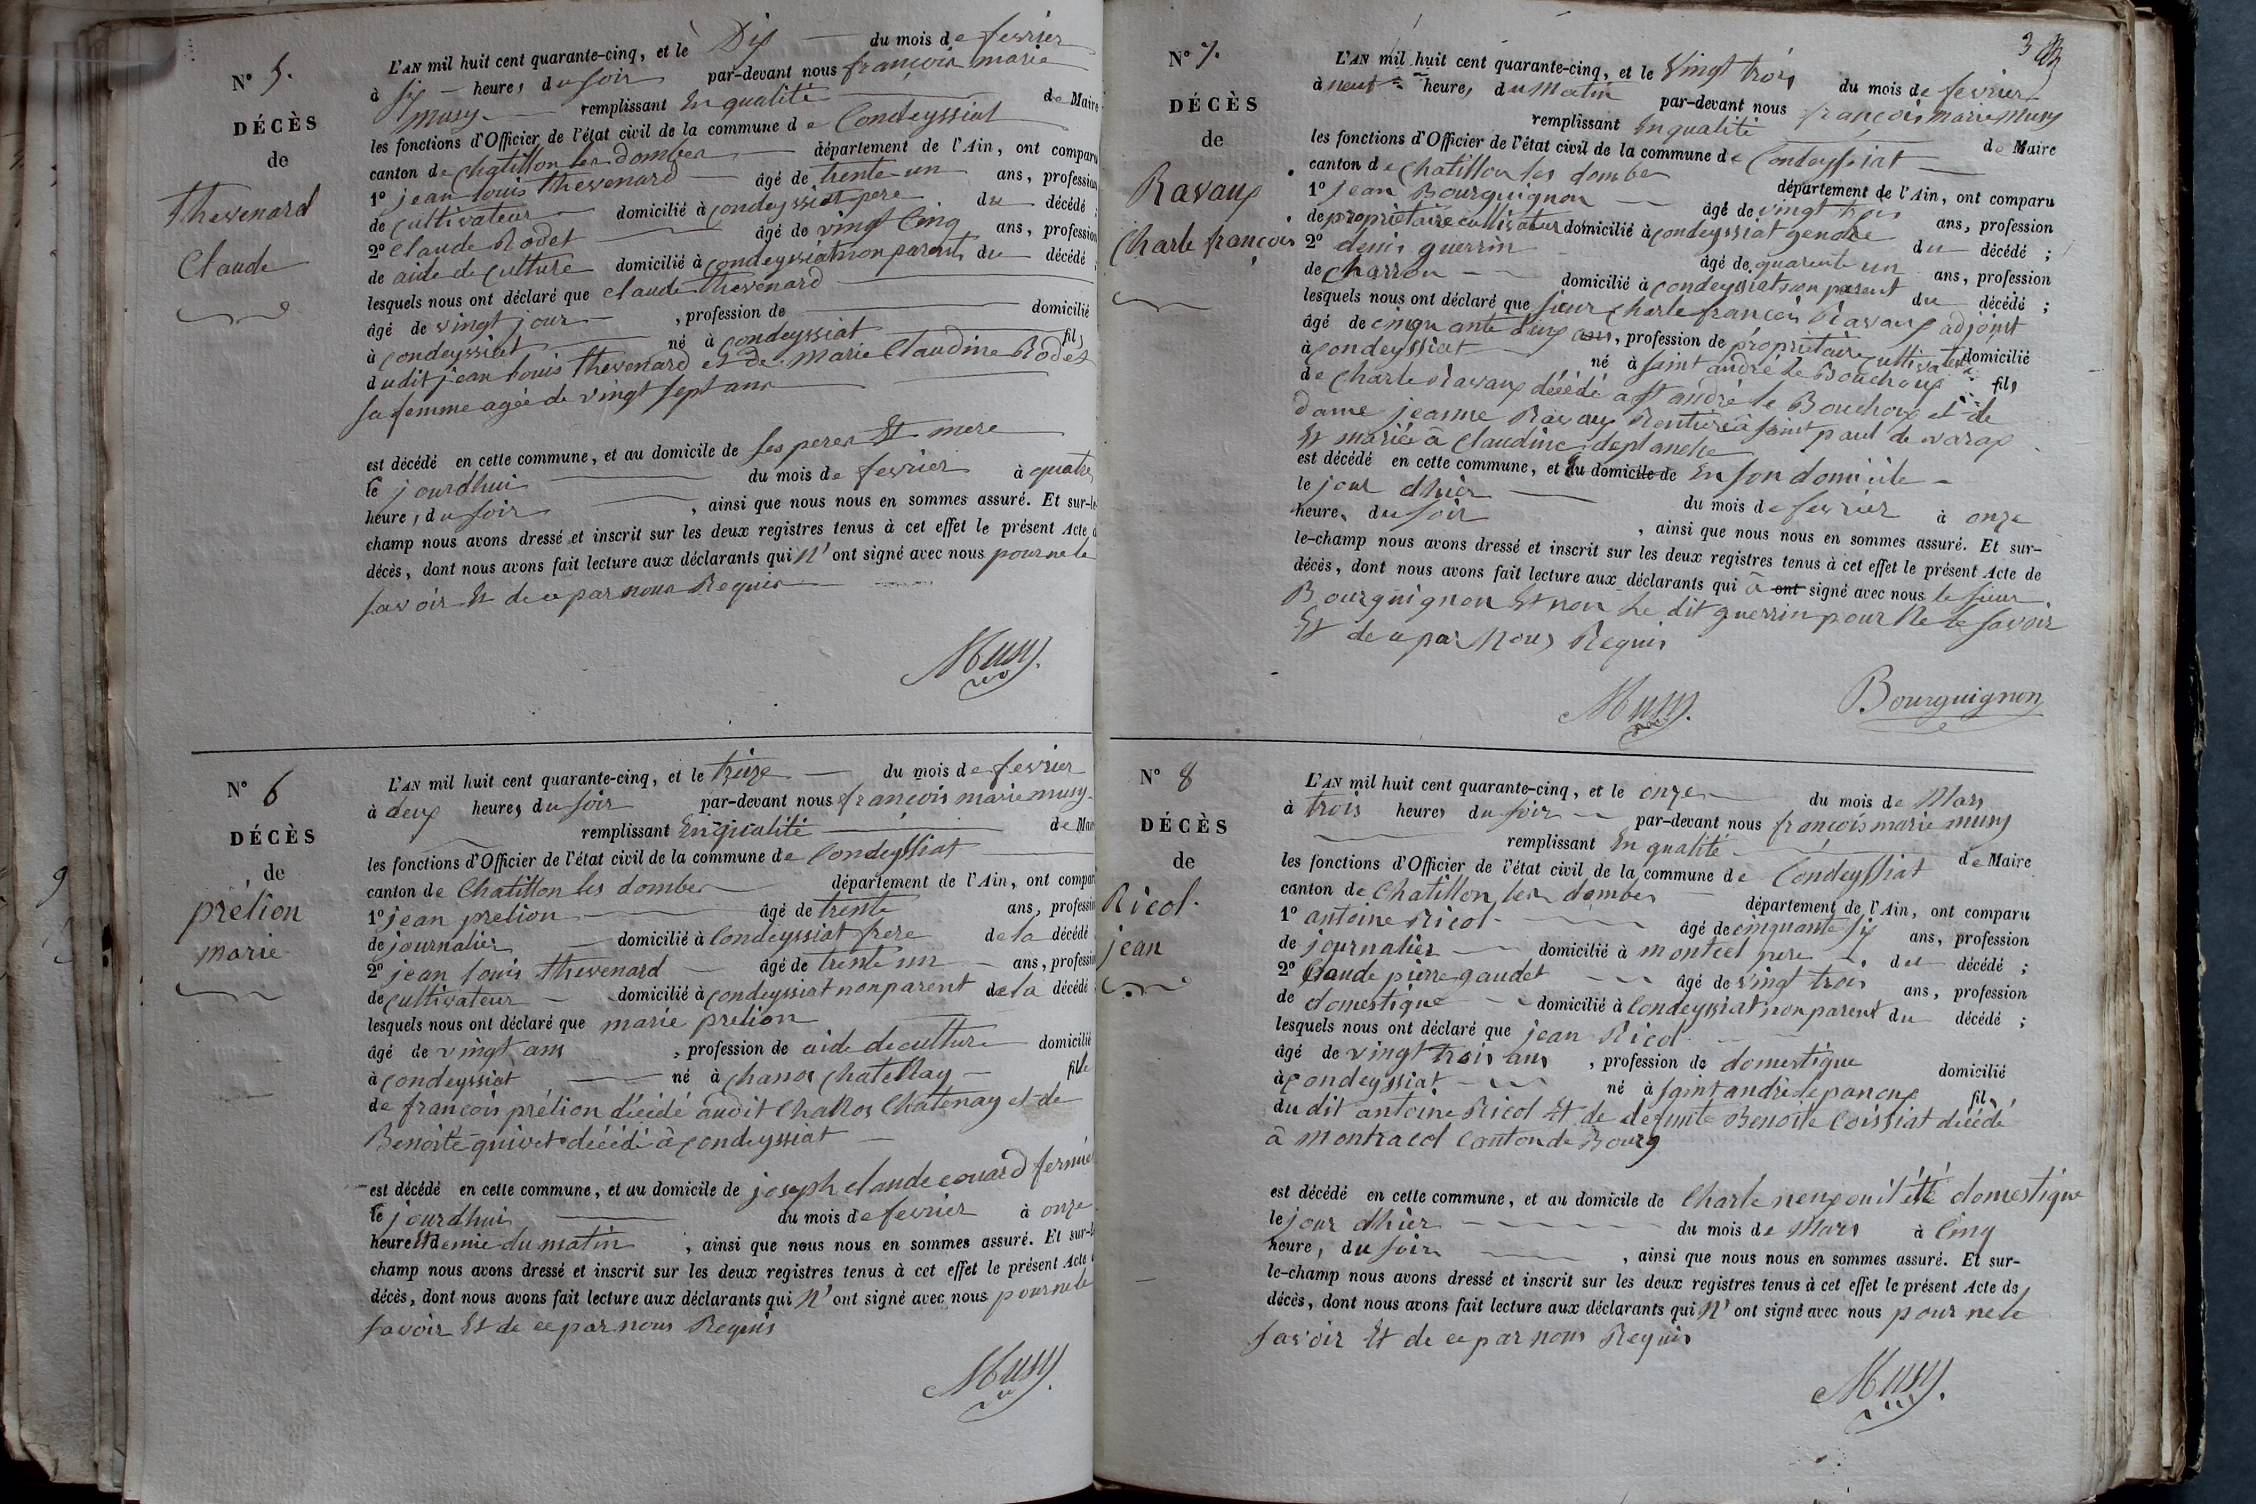 N° 5.
DÉCÈS
de
Thevenard
Claude
L'AN mil huit cent quarante-cinq, et le Dix du mois de fevrier
à six heures du soir par-devant nous françois marie
Musy remplissant En qualité de Maire
les fonctions d'Officier de l'état civil de la commune de Condeyssiat
canton de chatillon les dombes département de l'Ain, ont comparu
1° jean louis thevenard âgé de trente un ans, profession
de cultivateur domicilié à condeyssiat pere du décédé ;
2° Claude Rodet âgé de vingt cinq ans, profession
de aide de culture domicilié à condeyssiat non parent du décédé ;
lesquels nous ont déclaré que claude thevenard
âgé de vingt jour , profession de domicilié
à condeyssiat né à condeyssiat fils
dudit jean louis thevenard et de marie Claudine Rodet
sa femme agée de vingt sept ans
est décédé en cette commune, et au domicile de ses peres Et mere
le jourdhui du mois de fevrier à quatre
heures du soir , ainsi que nous nous en sommes assuré. Et sur-le
champ nous avons dressé et inscrit sur les deux registres tenus à cet effet le présent Acte d
décès, dont nous avons fait lecture aux déclarants qui n' ont signé avec nous pour ne le
savoir Et de ce par nous Requis
Musy.
N° 6
DÉCÈS
de
prélion
marie
L'AN mil huit cent quarante-cinq, et le treize du mois de fevrier
à deux heures du soir par-devant nous françois marie musy
remplissant En qualité de Mai
les fonctions d'Officier de l'état civil de la commune de Condeyssiat
canton de Chatillon les dombes département de l'Ain, ont compar
1° jean prelion âgé de trente ans, professi
de journalier domicilié à Condeyssiat frere de la décédé
2° jean louis thevenard âgé de trente un ans, professi
de cultivateur domicilié à condeyssiat non parent de la décédé
lesquels nous ont déclaré que marie prelion
âgé de vingt ans , profession de aide de culture domicilié
à condeyssiat né à chanos chatellay fille
de françois prélion décédé audit Chanos Chatenay et de
Benoite quivet décédé à condeyssiat
est décédé en cette commune, et au domicile de joseph claude eouard fermier
le jourdhui du mois de fevrier à onze
heure Et demie du matin , ainsi que nous nous en sommes assuré. Et sur-l
champ nous avons dressé et inscrit sur les deux registres tenus à cet effet le présent Acte
décès, dont nous avons fait lecture aux déclarants qui N' ont signé avec nous pour ne le
savoir Et de ce par nous Requis
Musy.
3
N° 7.
DÉCÈS
de
Ravaux
Charle françois
L'AN mil huit cent quarante-cinq, et le Vingt trois du mois de fevrier
à neuf heures du Matin par-devant nous françois marie Musy
remplissant En qualité de Maire
les fonctions d'Officier de l'état civil de la commune de Condeyssiat
canton de Chatillon les dombes département de l'Ain, ont comparu
1° jean Bourguignon âgé de vingt trois ans, profession
de propriétaire cultivateur domicilié à condeyssiat gendre du décédé ;
2° denis guerrin âgé de quarente un ans, profession
de charron domicilié à condeyssiat non parent du décédé ;
lesquels nous ont déclaré que sieur charle françois Ravaux adjoint
âgé de cinquante deux ans, profession de propriétaire cultivateur domicilié
à condeyssiat né à saint andré le Bouchoux fils
de Charle Ravaux décédé a st andré le Bouchoux et de
Dame jeanne Ravaux Rentiere à saint paul de varax
Et marié à Claudine deplanche
est décédé en cette commune, et au domicile de En son domicile
le jour dhier du mois de fevrier à onze
heures du soir , ainsi que nous nous en sommes assuré. Et sur-
le-champ nous avons dressé et inscrit sur les deux registres tenus à cet effet le présent Acte de
décès, dont nous avons fait lecture aux déclarants qui à ont signé avec nous le sieur
Bourguignon Et non le dit guerrin pour Ne le savoir
Et de ce par Nous Requis
Musy. Bourguignon
N° 8
DÉCÈS
de
Ricol
jean
L'AN mil huit cent quarante-cinq, et le onze du mois de Mars
à trois heures du soir par-devant nous françois marie musy
remplissant En qualité de Maire
les fonctions d'Officier de l'état civil de la commune de Condeyssiat
canton de Chatillon les dombes département de l'Ain, ont comparu
1° antoine Ricol âgé de cinquante six ans, profession
de journalier domicilié à montcet pere du décédé ;
2° Claude pierre gaudet âgé de vingt trois ans, profession
de domestique domicilié à Condeyssiat non parent du décédé ;
lesquels nous ont déclaré que jean Ricol
âgé de vingt trois ans , profession de domestique domicilié
à condeyssiat né à saint andré le panoux fils
du dit antoine Ricol Et de defunte Benoite Coissiat décédé
à montracol Canton de Bourg
est décédé en cette commune, et au domicile de Charle neux ou il été domestique
le jour dhier du mois de Mars à Cinq
heures du soir , ainsi que nous nous en sommes assuré. Et sur-
le-champ nous avons dressé et inscrit sur les deux registres tenus à cet effet le présent Acte de
décès, dont nous avons fait lecture aux déclarants qui N' ont signé avec nous pour ne le
savoir Et de ce par nous Requis
Musy.